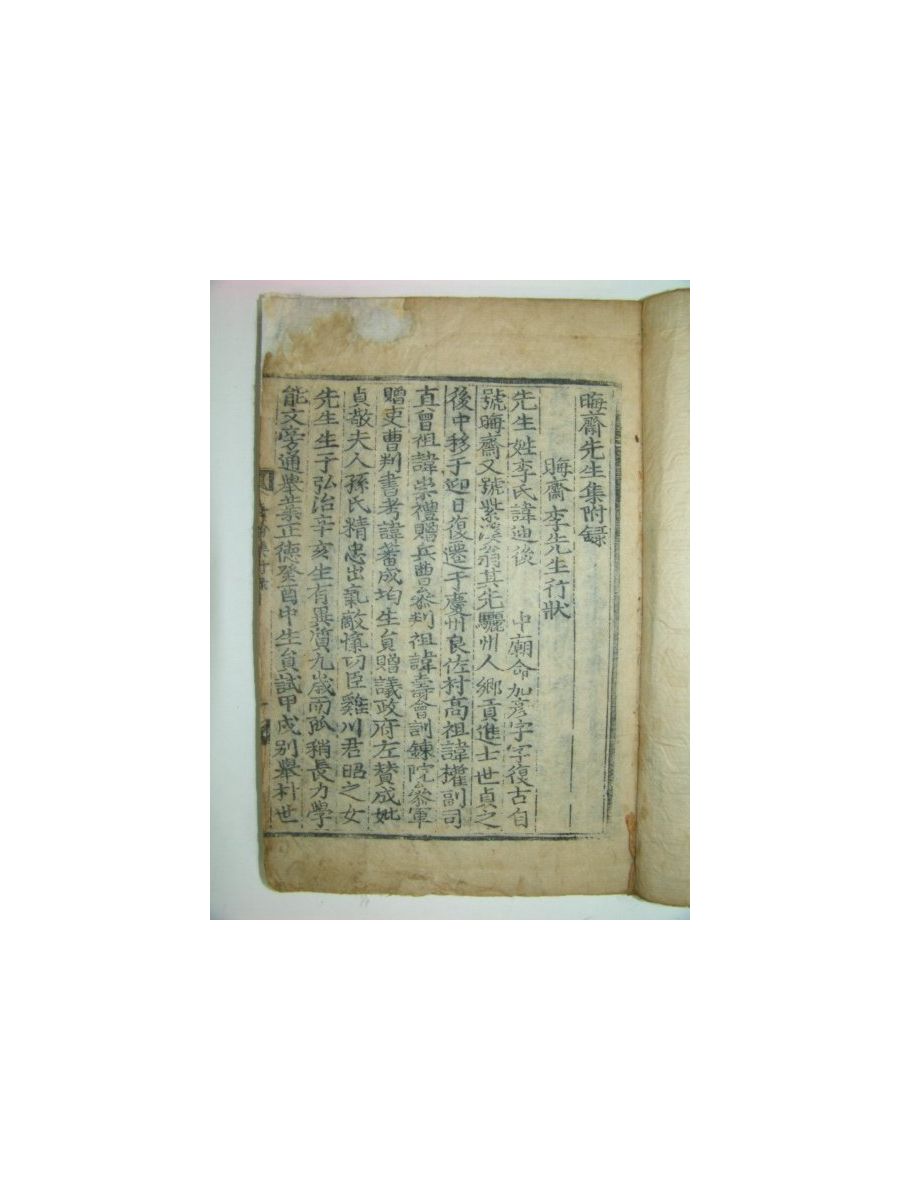 晦齋先生集附録
晦齋李先生行狀
先生姓李氏諱迪後 中廟命加彦字字復古自
號晦齋又號紫溪翁其先驪州人鄉貢進士世貞之
後中移于迎日復遷于慶州良佐村高祖諱權副司
直曾祖諱崇禮贈兵曹參判祖諱壽會訓鍊院參軍
贈吏曹判書考諱蕃成均生貟贈議政府左贊成妣
貞敬夫人孫氏精忠出氣敵愾功臣雞川君昭之女
先生生于弘治辛亥生有異質九歲而孤稍長力學
能文旁通舉業正德癸酉中生貟試甲戌别舉朴世